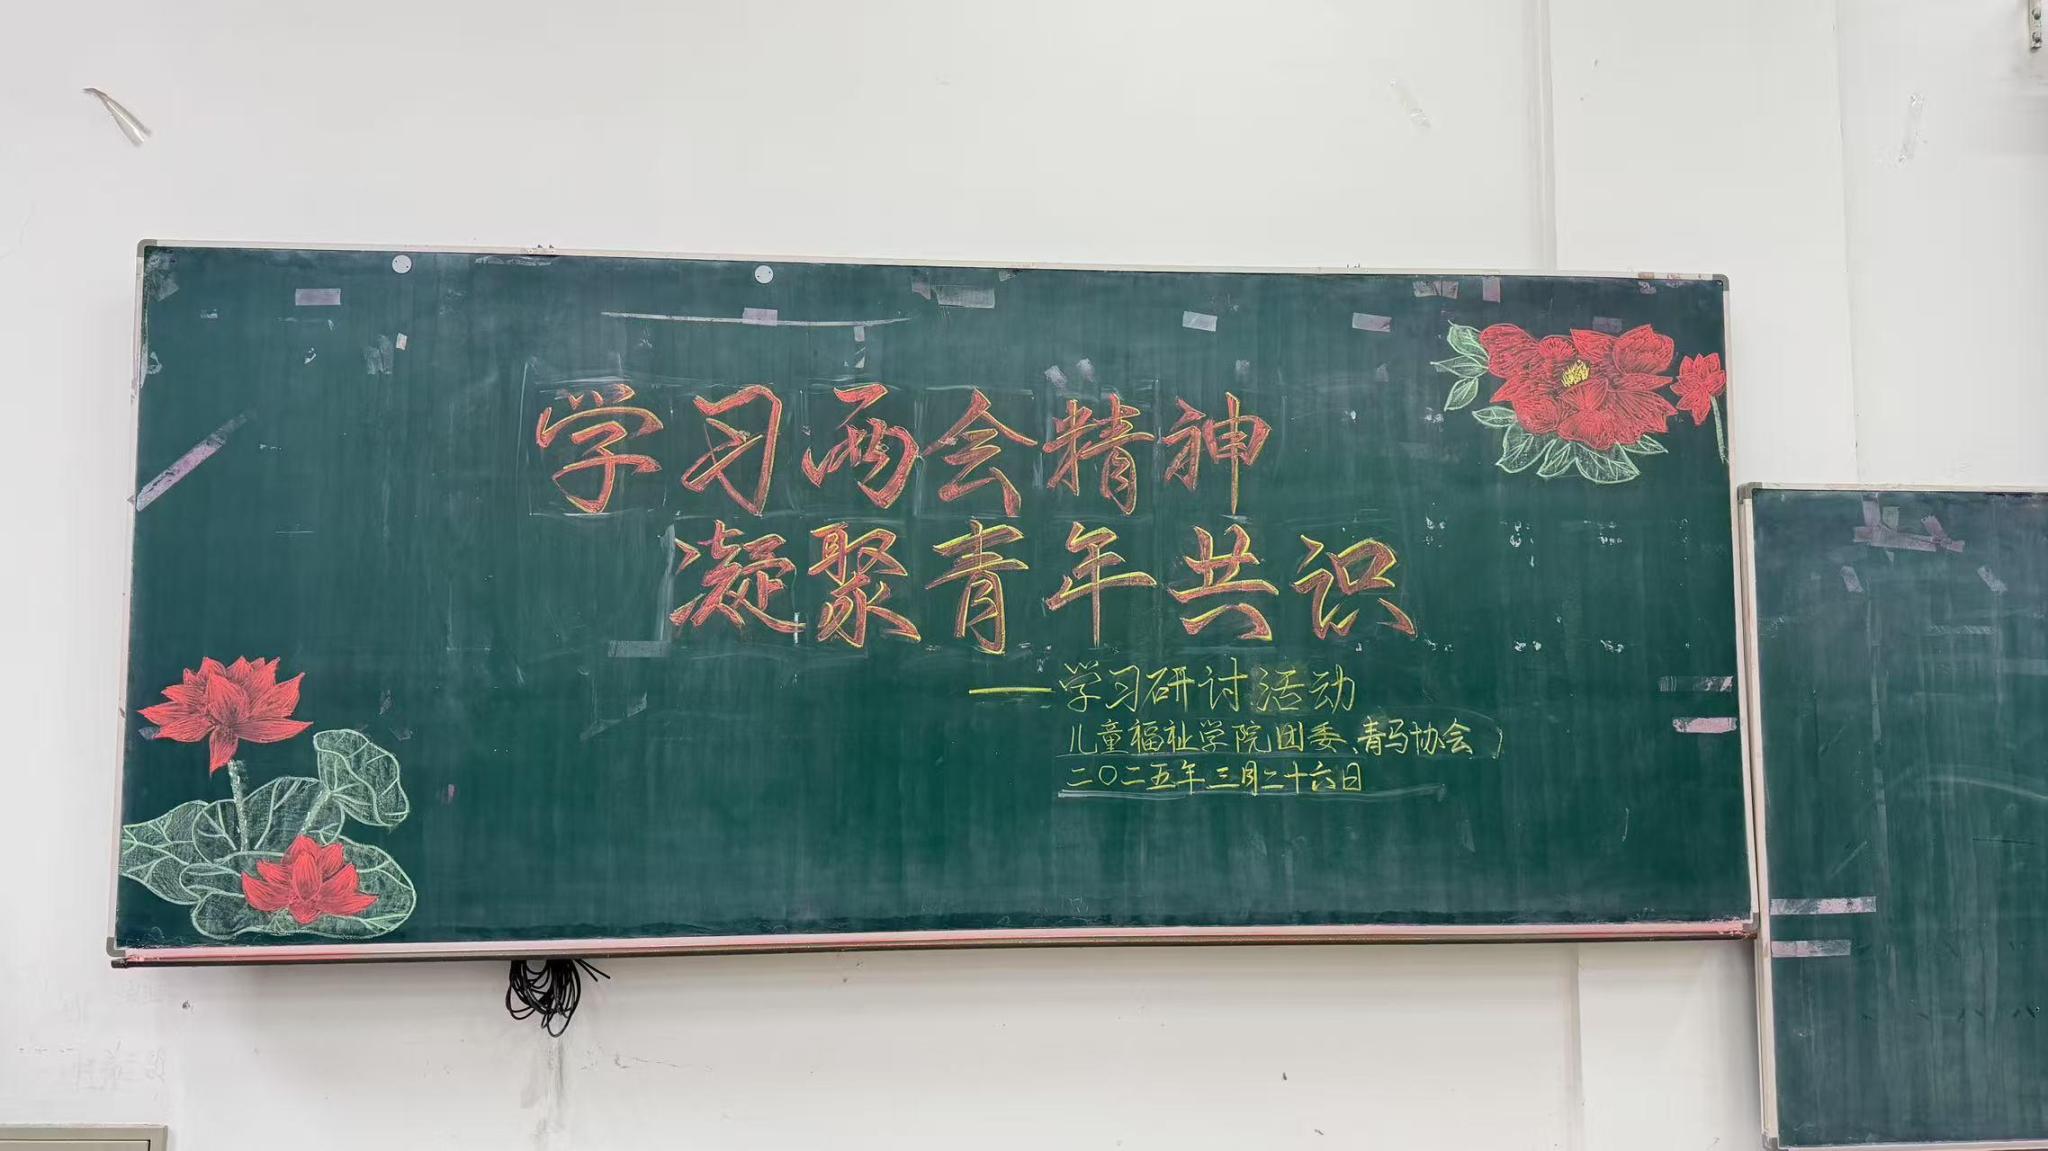 学习两会精神
凝聚青年共识
——学习研讨活动
儿童福祉学院团委、青马协会
二〇二五年三月二十六日